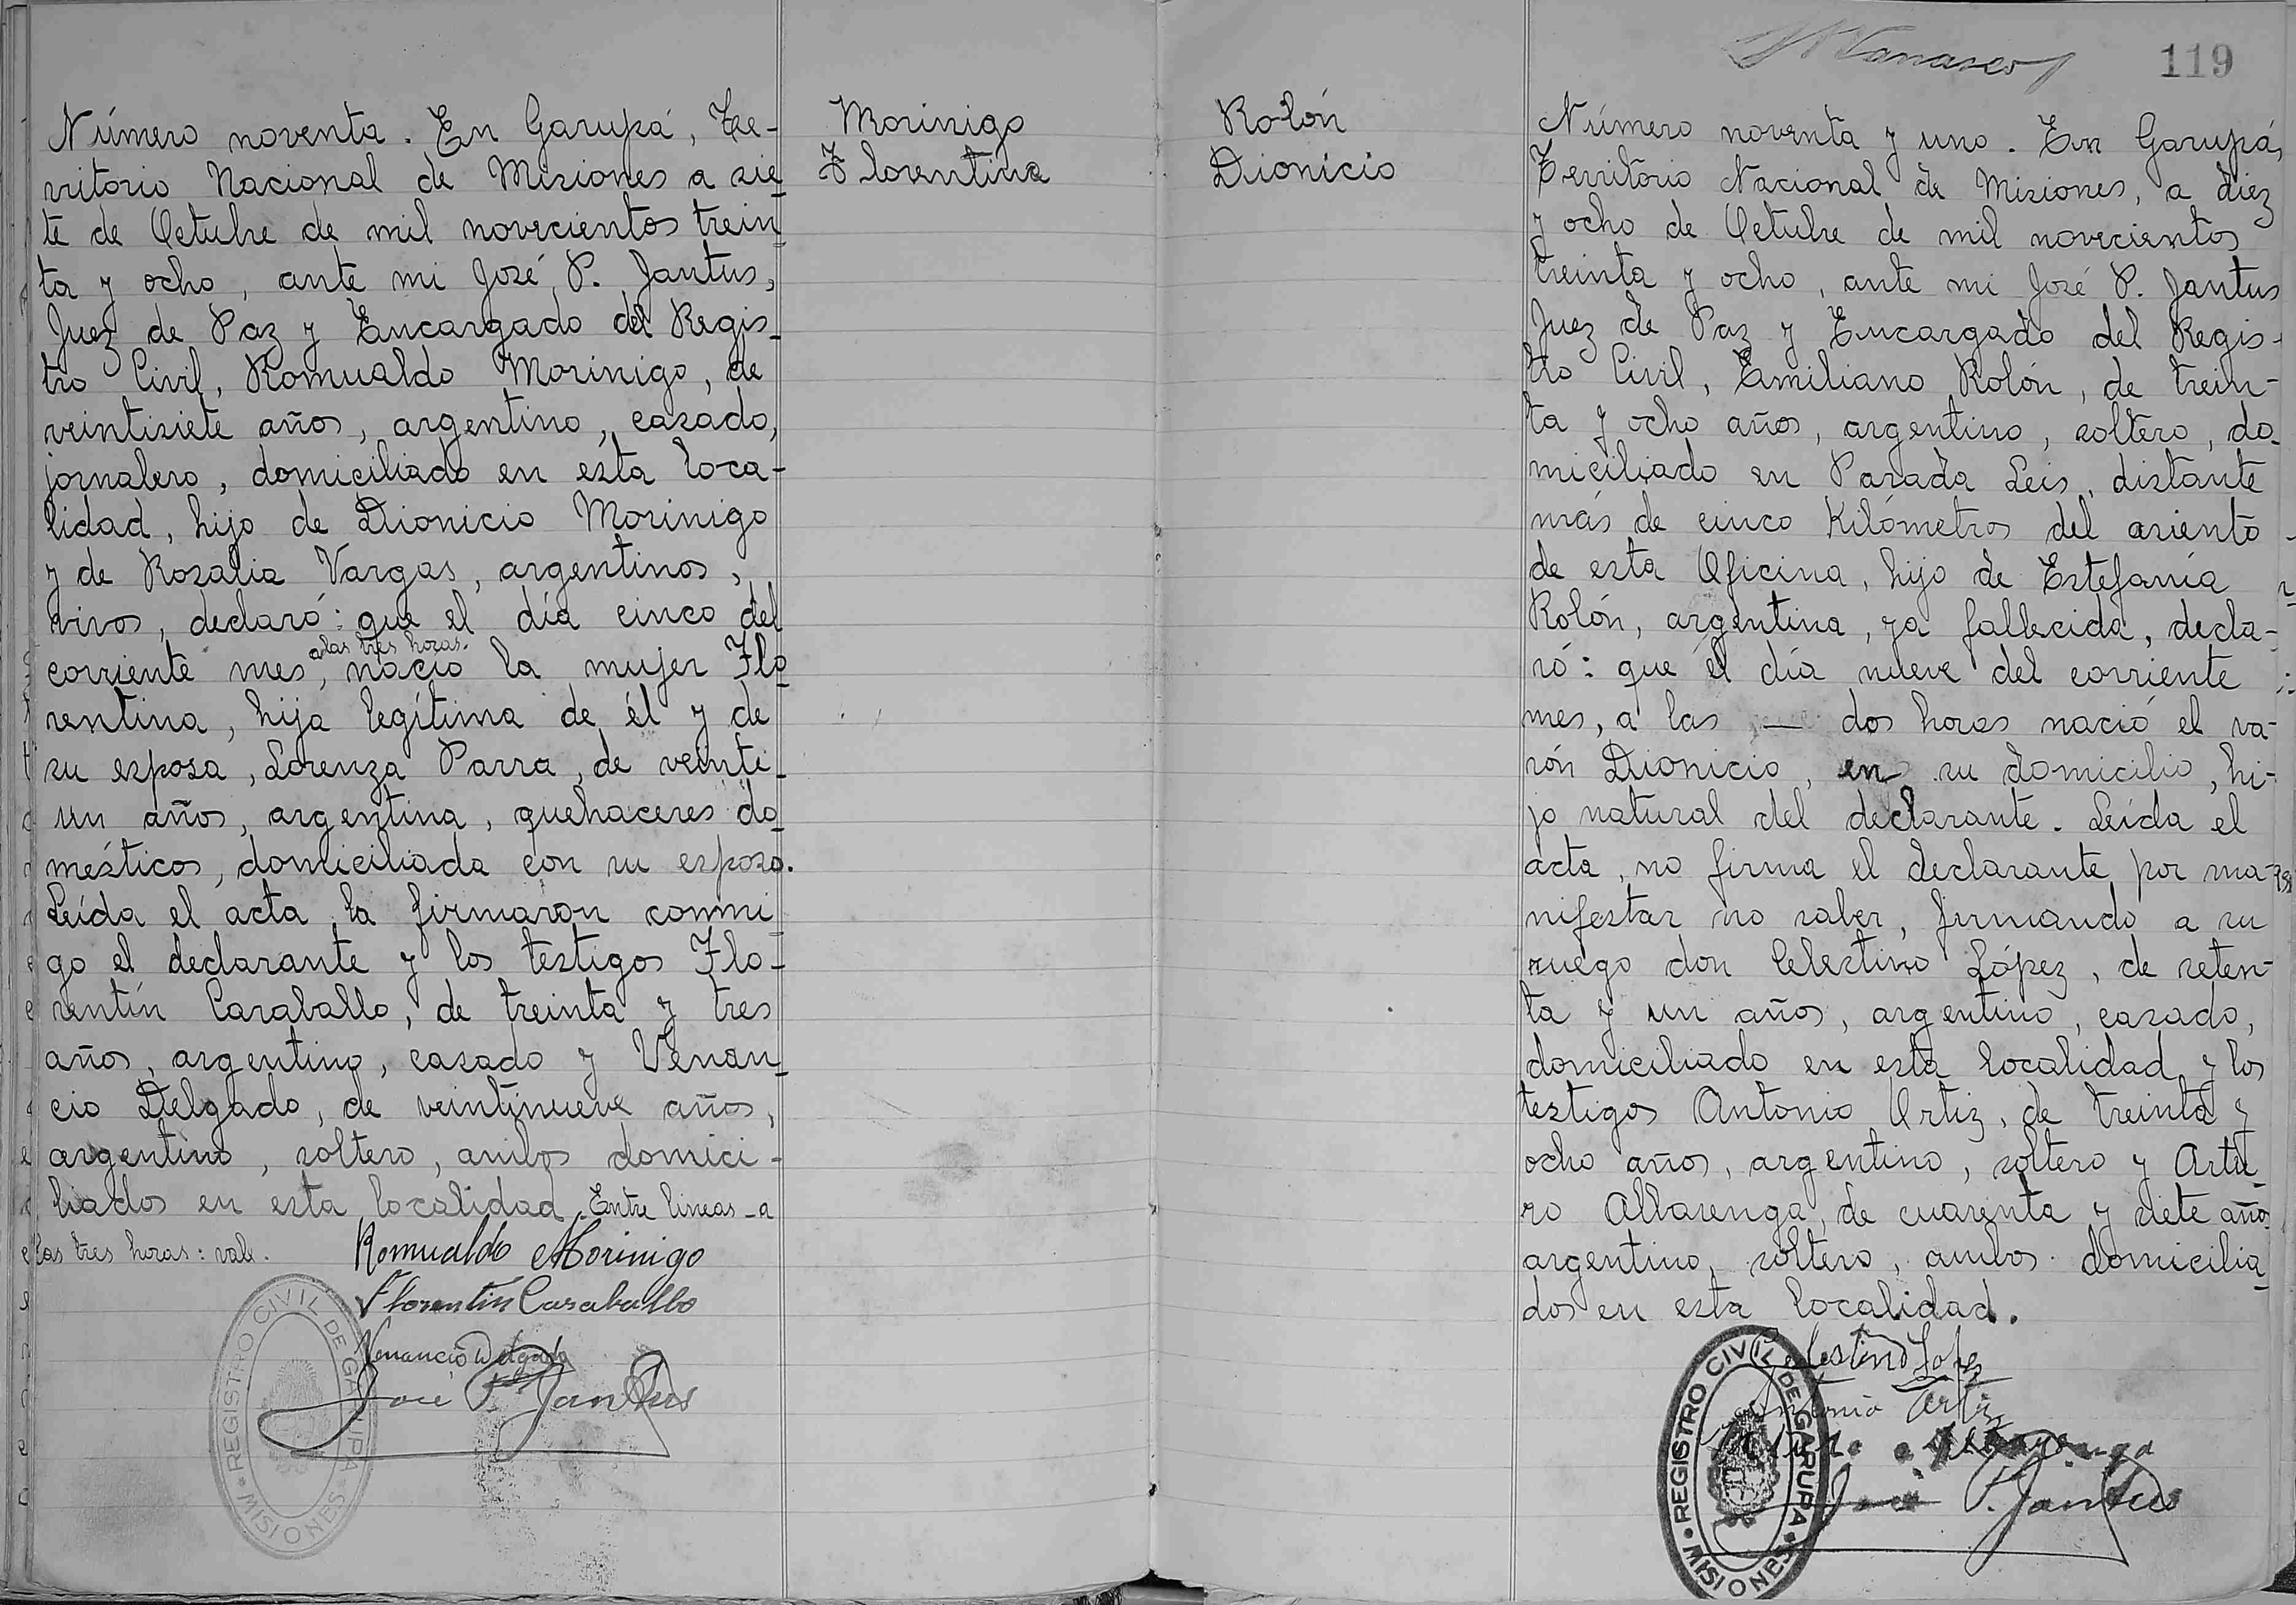 Número noventa. En Garupá, Te-
rritorio Nacional de Misiones a sie
te de Octubre de mil novecientos trein
ta y ocho, ante mi José P. Jantus,
Juez de Paz y Encargado del Regis-
tro Civil, Romualdo Morinigo, de
veintisiete años, argentino, casado,
jornalero, domiciliado en esta loca-
lidad, hijo de Dionicio Morinigo
y de Rosalia Vargas, argentinos,
vivos, declaró: que el día cinco del
a las tres horas.
corriente mes, nació la mujer Flo
rentina, hija legítima de él y de
su esposa, Lorenza Parra, de veinti-
un años, argentina, quehaceres do
mésticos, domiciliada con su esposo.
Leída el acta la firmaron conmi
go el declarante y los testigos Flo-
rentín Caraballo, de treinta y tres
años, argentino, casado y Venan
cio Delgado, de veintinueve años,
argentino, soltero, ambos domici-
liados en esta localidad. Entre lineas - a
las tres horas: vale.
Romualdo Morinigo
Florentin Caraballo
Venancio Delgado
José P. Jantus
REGISTRO CIVIL DE GARUPA
MISIONES
Morinigo
Florentina
Rolón
Dionicio
119
Número noventa y uno. En Garupá,
Territorio Nacional de Misiones, a diez
y ocho de Octubre de mil novecientos
treinta y ocho, ante mi José P. Jantus
Juez de Paz y Encargado del Regis-
tro Civil, Emiliano Rolón, de trein-
ta y ocho años, argentino, soltero, do
miciliado en Parada Leis, distante
más de cinco Kilómetros del asiento
de esta Oficina, hijo de Estefanía
Rolón, argentina, ya fallecida, decla-
ró: que el día nueve del corriente
mes, a las — dos horas nació el va-
rón Dionicio, en su domicilio, hi-
jo natural del declarante. Leída el
acta, no firma el declarante por ma-
nifestar no saber, firmando a su
ruego don Celestino López, de seten-
ta y un años, argentino, casado,
domiciliado en esta localidad y los
testigos Antonio Ortiz, de treinta y
ocho años, argentino, soltero y Artu
ro Albarenga, de cuarenta y siete años
argentino, soltero, ambos domicilia
dos en esta localidad.
Celestino Lopez
Antonio Ortiz
José P. Jantus
REGISTRO CIVIL DE GARUPA
MISIONES